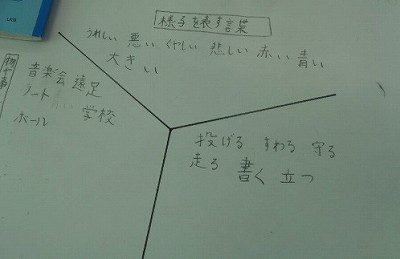 様子を表す言葉
うれしい 悪い くやしい 悲しい 赤い 青い
大きい
物や事
音楽会 遠足
ノート 学校
ボール
投げる すわる 守る
走る 書く 立つ